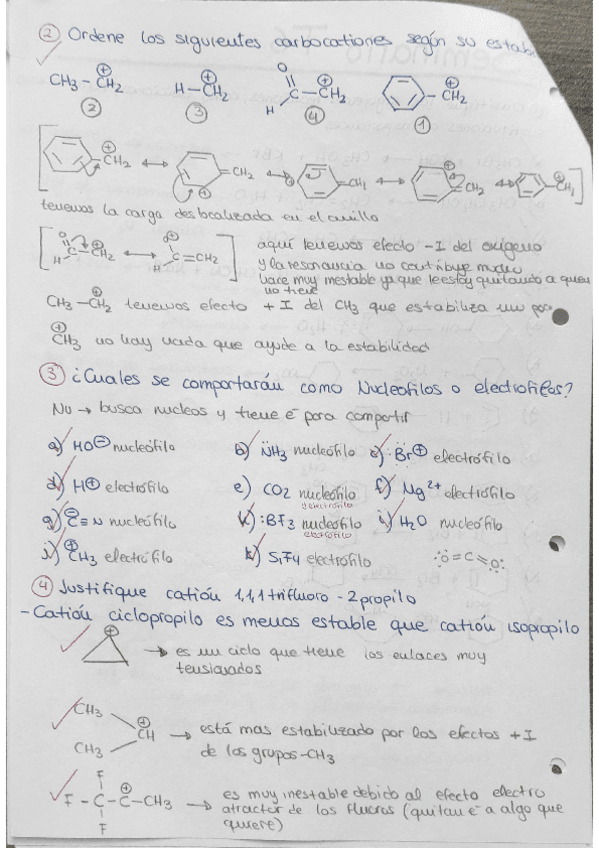 ② Ordene los siguientes carbocationes según su estab
CH₃-CH₂⊕ H-CH₂⊕ O H C-CH₂⊕ CH₂⊕
② ③ ④ ①
⊕ CH₂ ↔ CH₂ ⊕ ↔ ⊕ CH₂ ↔ ⊕ CH₂ ↔ ⊕ CH₂
tenemos la carga deslocalizada en el anillo
O H C-CH₂⊕ ↔ O⊕ H C=CH₂ aquí tenemos efecto -I del oxígeno
y la resonancia no contribuye mucho
hace muy inestable ya que le estoy quitando a quien
no tiene
CH₃-CH₂⊕ tenemos efecto +I del CH₃ que estabiliza un poco
⊕CH₃ no hay nada que ayude a la estabilidad
③ ¿Cuales se comportarán como Nucleofilos o electrofilos?
Nu → busca nucleos y tiene ē para compartir
a) HO⊖ nucleófilo b) N̈H₃ nucleófilo c) :Br⊕ electrófilo
d) H⊕ electrófilo e) CO₂ nucleófilo f) Mg²⁺ electrófilo
electrófilo
g) ⊖C≡N nucleófilo h) :BF₃ nucleófilo i) H₂O nucleófilo
electrófilo
j) ⊕CH₃ electrófilo k) SiF₄ electrófilo :O=C=O:
④ Justifique catión 1,1,1 trifluoro-2propilo
-Catión ciclopropilo es menos estable que catión isopropilo
⊕ → es un ciclo que tiene los enlaces muy
tensionados
CH₃ CH₃ ⊕CH → está mas estabilizado por los efectos +I
de los grupos -CH₃
F F-C-C⊕-CH₃ F → es muy inestable debido al efecto electro
atractor de los fluoros (quitan ē a algo que
quiere)